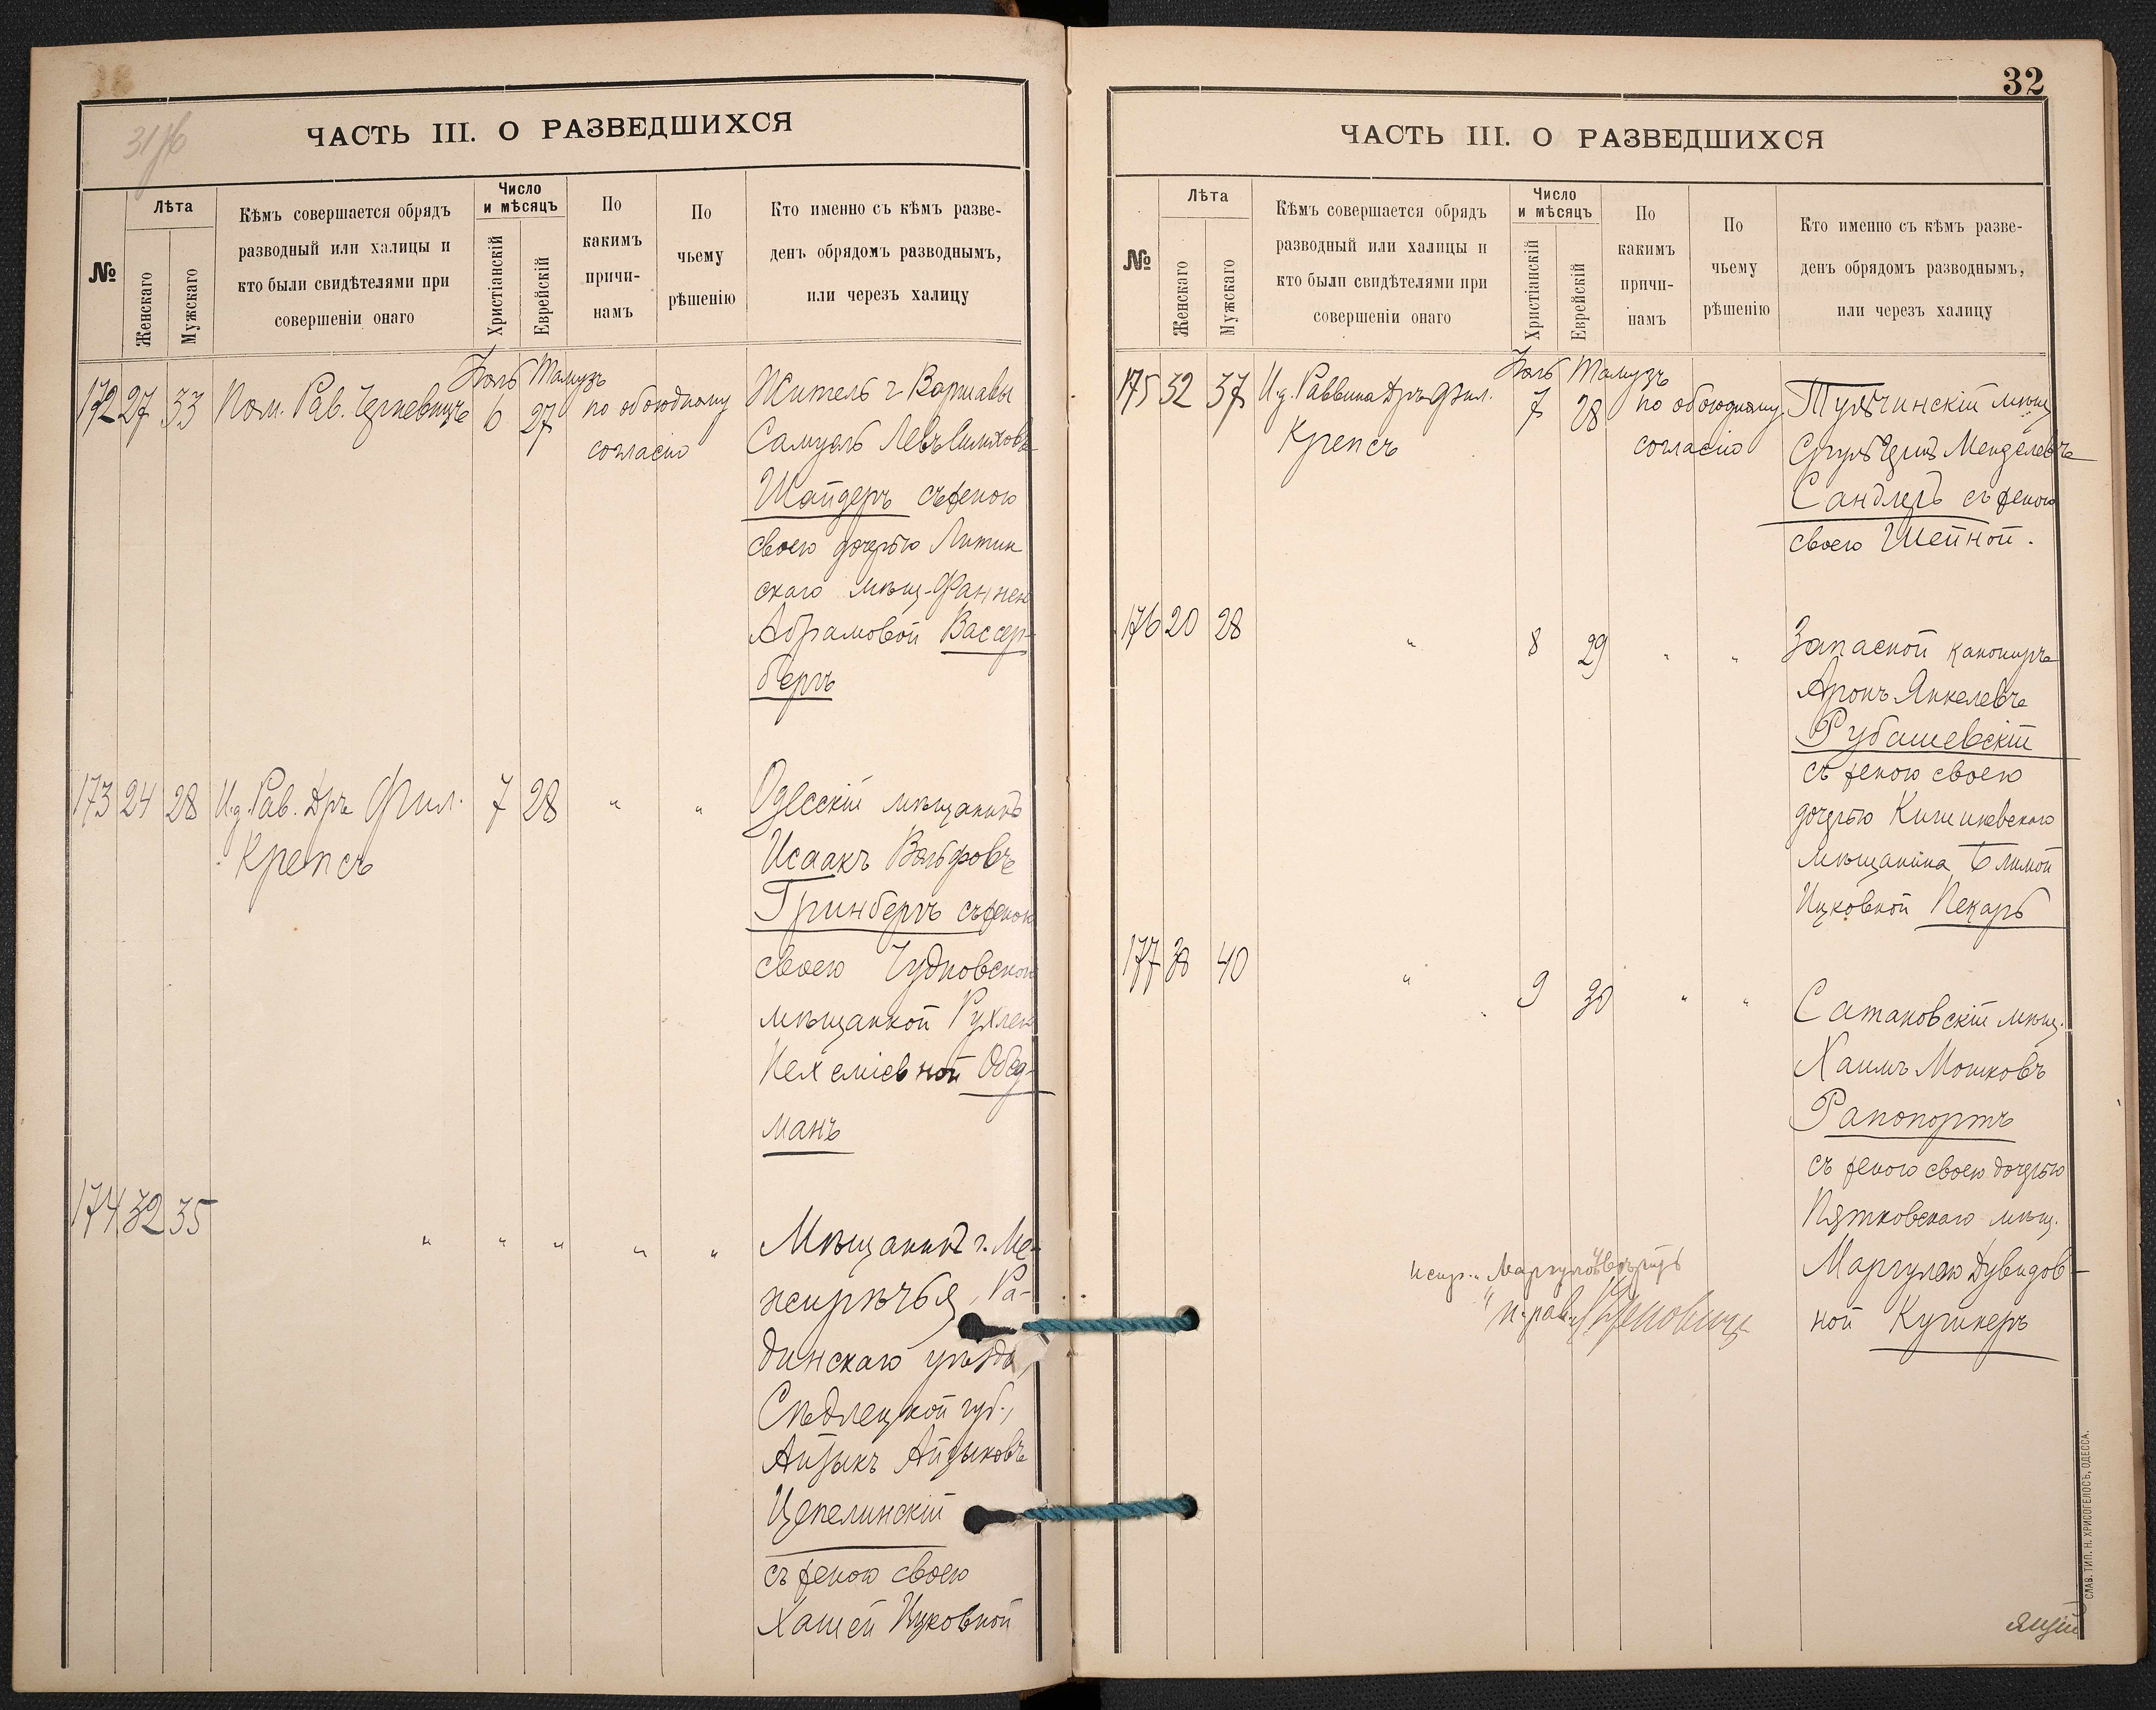 31 об
ЧАСТЬ III. О РАЗВЕДШИХСЯ
№
Лѣта
Женскаго
Мужскаго
Кѣмъ совершается обрядъ
разводный или халицы и
кто были свидѣтелями при
совершеніи онаго
Число
и мѣсяцъ
Христіанскій
Еврейскій
По
какимъ
причи-
намъ
По
чьему
рѣшенію
Кто именно съ кѣмъ разве-
денъ обрядомъ разводнымъ,
или черезъ халицу
Іюль Тамузъ
172 27 33 Пом. Рав. 6 27 по обоюдному Житель г. Варшавы
согласію Самуэль Левъ
Шайдеръ съ женою
своею дочерью Литин
скаго мѣщ. Фанней
Абрамовой Вассер-
бергъ
173 24 28 И.д. Рав. Дръ Фил. 7 28 " " Одесскій мѣщанинъ
Крепсъ Исаакъ Вольфовъ
Гринбергъ съ женою
своею Чудновскою
мѣщанкой Рухлею
Нехеміевной Обед-
манъ
174 32 35 " " " " " Мѣщанинъ г. Ме-
жирѣчья, Ра-
динскаго уѣзда,
Сѣдлецкой губ.,
Айзыкъ Айзыковъ
Цепелинскій
съ женою своею
Хашей Ицковной
32
ЧАСТЬ III. О РАЗВЕДШИХСЯ
№
Лѣта
Женскаго
Мужскаго
Кѣмъ совершается обрядъ
разводный или халицы и
кто были свидѣтелями при
совершеніи онаго
Число
и мѣсяцъ
Христіанскій
Еврейскій
По
какимъ
причи-
намъ
По
чьему
рѣшенію
Кто именно съ кѣмъ разве-
денъ обрядомъ разводнымъ,
или черезъ халицу
Іюль Тамузъ
175 32 37 И.д. Раввина Дръ Фил. 7 28 по обоюдному Тульчинскій мѣщ.
Крепсъ согласію Сруль Менделевъ
Сандлеръ съ женою
своею Шейной.
176 20 28 " 8 29 " " Запасной канониръ
Аронъ Янкелевъ
Рубашевскій
съ женою своею
дочерью Кишиневскаго
мѣщанина Блимой
Ицковной Пекарь
177 38 40 " 9 30 " " Сатановскій мѣщ.
Хаимъ Мошковъ
Рапопортъ
съ женою своею дочерью
Пятковскаго мѣщ.
Маргулею Дувидов-
ной Кушнеръ
СЛАВ. ТИП. Н. ХРИСОГЕЛОСЪ, ОДЕССА.